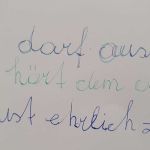 darf aus
hört dem
ist ehrlich